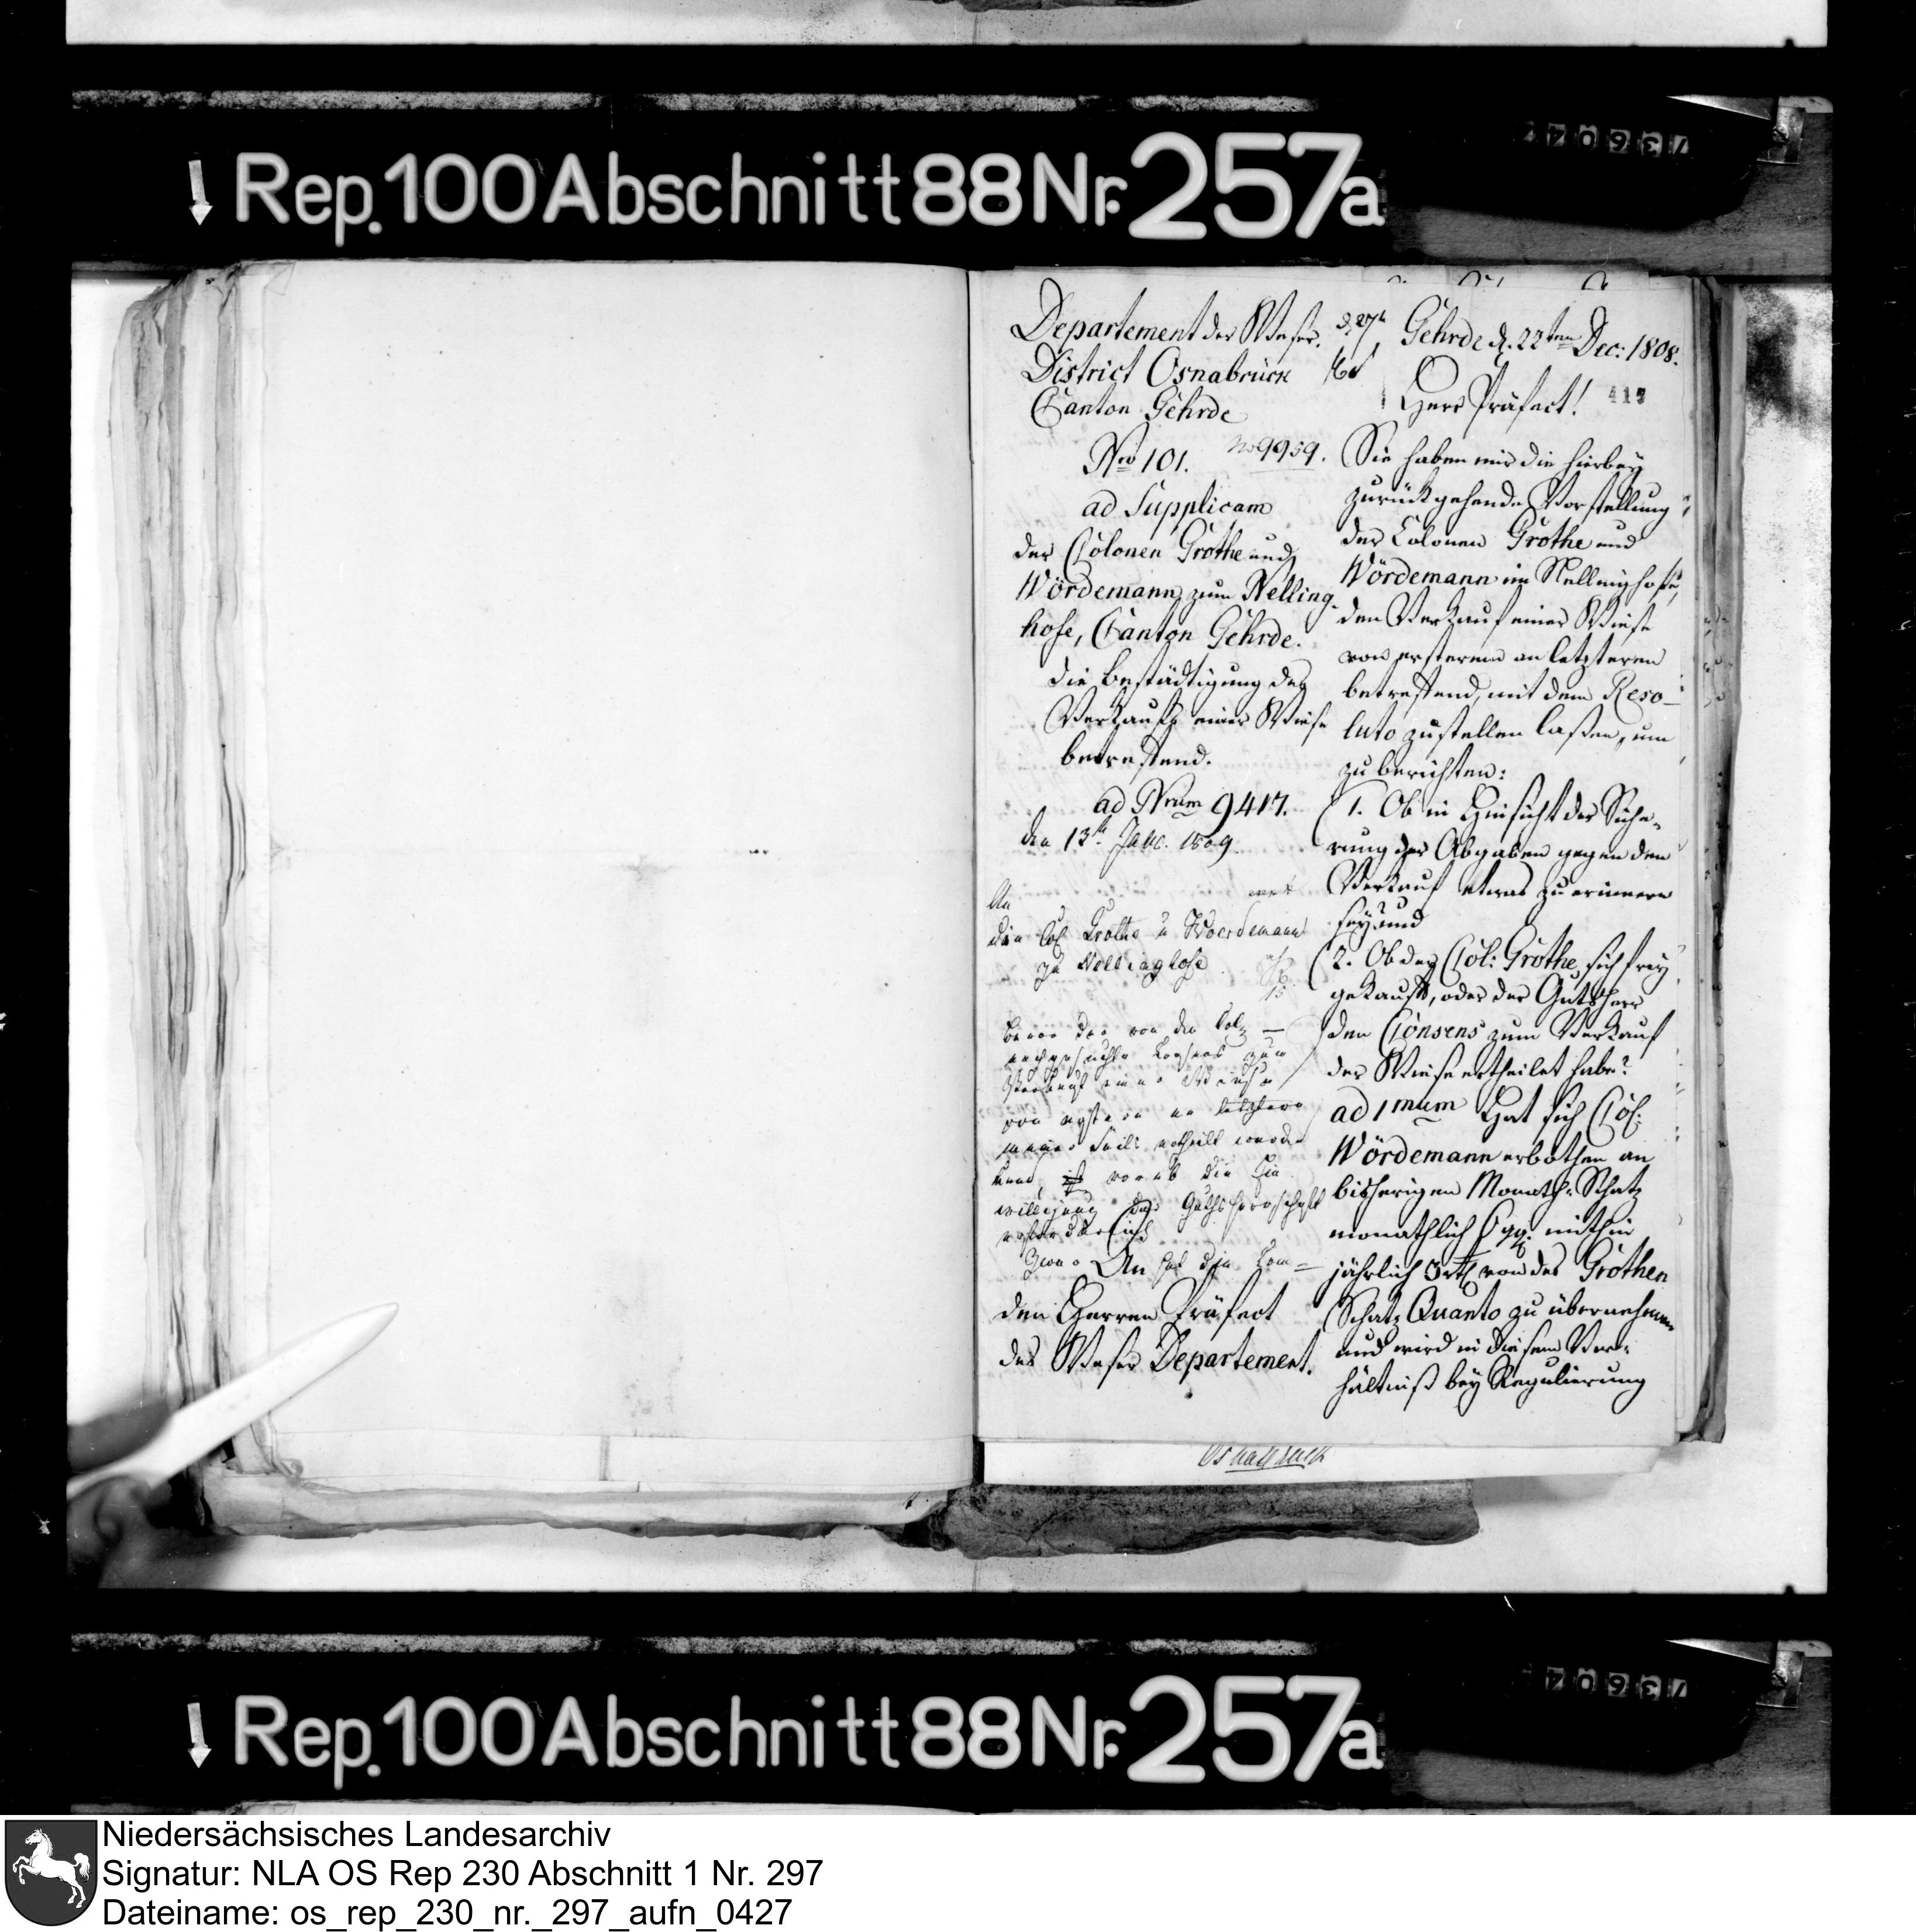 Rep. 100 Abschnitt 88 Nr. 257a
Departement der Weser.
District Osnabrück
Canton Gehrde
No 101. No 9959.
ad Supplicam
der Colonen Grothe und
Wördemann zum Nelling
hofe, Canton Gehrde.
die Bestädtigung des
Verkaufs einer Wiese
betreffend.
ad Nrum 9417.
den 13t Janr. 1809
An
die Col. Grothe u Woerdemann
zu Nellinghofe
Bevor der von den Col.
nachgesuchte Consens zum
Verkauf einer Wiese
von ersteren an letztern
ertheilt werden
kann, ist vorab die Ein
willigung der Gutsherrschaft
erforderlich
An
den Herren Präfect
des Weser Departement.
Gehrde d. 22ten Dec: 1808.
Herr Präfect!
417
Sie haben mir die hierbey
zurückgehende Vorstellung
der Colonen Grothe und
Wördemann im Nellinghofe,
den Verkauf einer Wiese
von ersterem an letzteren
betreffend, mit dem Reso-
luto zustellen laßen, um
zu berichten:
1. Ob in Hinsicht der Siche-
rung der Abgaben gegen den
Verkauf etwas zu erinnern
sey? und
2. Ob der Col: Grothe sich frey
gekauft, oder der Gutsherr
den Consens zum Verkauf
der Wiese ertheilet habe?
ad 1mum Hat sich Col:
Wördemann erbothen an
bisherigen Monath-Schatz
monathlich 6 ggr. mithin
jährlich 3 rtl von des Grothen
Schatz Quanto zu übernehmen
und wird in diesem Ver-
hältniß bey Regulierung
Osnabrück
Rep. 100 Abschnitt 88 Nr. 257a
Niedersächsisches Landesarchiv
Signatur: NLA OS Rep 230 Abschnitt 1 Nr. 297
Dateiname: os_rep_230_nr._297_aufn_0427